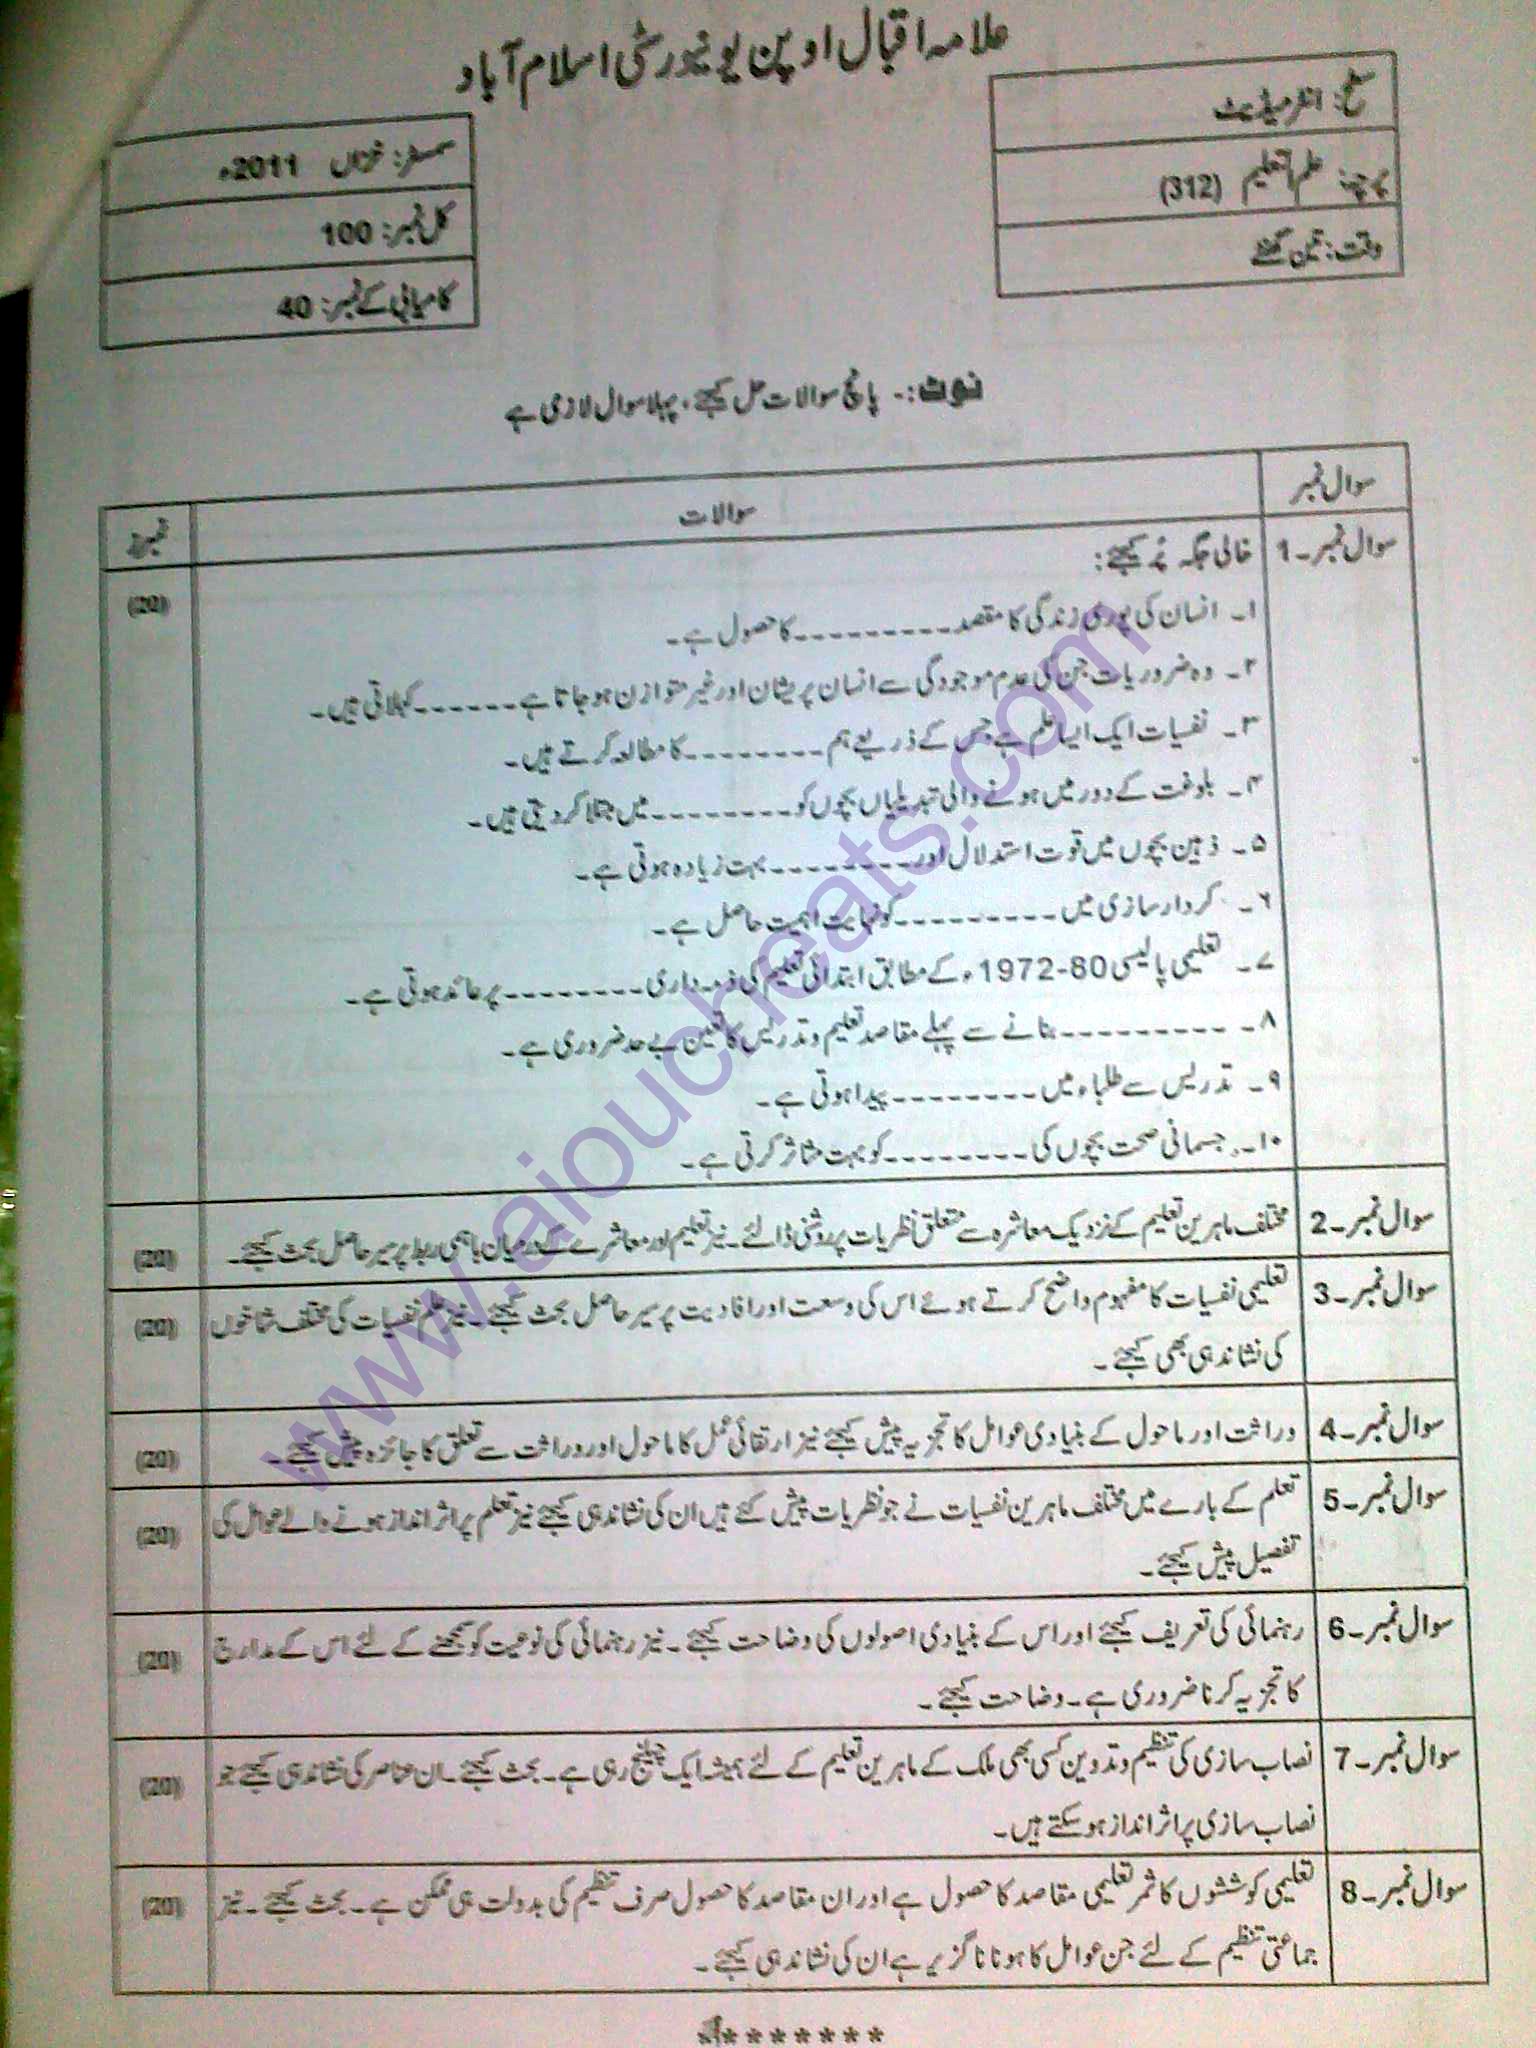 علامہ اقبال اوپن یونیورسٹی اسلام آباد
سطح: انٹرمیڈیٹ
پرچہ: علم التعلیم (312)
وقت: تین گھنٹے
سمسٹر: خزاں 2011ء
کل نمبر: 100
کامیابی کے نمبر: 40
نوٹ:- پانچ سوالات حل کیجئے، پہلا سوال لازمی ہے
سوال نمبر سوالات نمبرز
سوال نمبر۔1 خالی جگہ پُر کیجئے: (20)
۱۔ انسان کی پوری زندگی کا مقصد ---------کا حصول ہے۔
۲۔ وہ ضروریات جن کی عدم موجودگی سے انسان پریشان اور غیر متوازن ہو جاتا ہے------کہلاتی ہیں۔
۳۔ نفسیات ایک ایسا علم ہے جس کے ذریعے ہم --------کا مطالعہ کرتے ہیں۔
۴۔ بلوغت کے دور میں ہونے والی تبدیلیاں بچوں کو--------میں مبتلا کر دیتی ہیں۔
۵۔ ذہین بچوں میں قوت استدلال اور--------بہت زیادہ ہوتی ہے۔
۶۔ کردار سازی میں ---------کو نہایت اہمیت حاصل ہے۔
۷۔ تعلیمی پالیسی 80-1972ء کے مطابق ابتدائی تعلیم کی ذمہ داری--------پر عائد ہوتی ہے۔
۸۔ ---------بنانے سے پہلے مقاصد تعلیم و تدریس کا تعین بے حد ضروری ہے۔
۹۔ تدریس سے طلباء میں --------پیدا ہوتی ہے۔
۱۰۔ جسمانی صحت بچوں کی --------کو بہت متاثر کرتی ہے۔
سوال نمبر۔2 مختلف ماہرین تعلیم کے نزدیک معاشرہ سے متعلق نظریات پر روشنی ڈالئے۔ نیز تعلیم اور معاشرے کے درمیان باہمی ربط پر سیر حاصل بحث کیجئے۔ (20)
سوال نمبر۔3 تعلیمی نفسیات کا مفہوم واضح کرتے ہوئے اس کی وسعت اور افادیت پر سیر حاصل بحث کیجئے۔ نیز علم نفسیات کی مختلف شاخوں (20)
کی نشاندہی بھی کیجئے۔
سوال نمبر۔4 وراثت اور ماحول کے بنیادی عوامل کا تجزیہ پیش کیجئے نیز ارتقائی عمل کا ماحول اور وراثت سے تعلق کا جائزہ پیش کیجئے۔ (20)
سوال نمبر۔5 تعلم کے بارے میں مختلف ماہرین نفسیات نے جو نظریات پیش کئے ہیں ان کی نشاندہی کیجئے نیز تعلم پر اثر انداز ہونے والے عوامل کی (20)
تفصیل پیش کیجئے۔
سوال نمبر۔6 رہنمائی کی تعریف کیجئے اور اس کے بنیادی اصولوں کی وضاحت کیجئے۔ نیز رہنمائی کی نوعیت کو سمجھنے کے لئے اس کے مدارج (20)
کا تجزیہ کرنا ضروری ہے۔ وضاحت کیجئے۔
سوال نمبر۔7 نصاب سازی کی تنظیم و تدوین کسی بھی ملک کے ماہرین تعلیم کے لئے ہمیشہ ایک چیلنج رہی ہے۔ بحث کیجئے۔ ان عناصر کی نشاندہی کیجئے جو (20)
نصاب سازی پر اثر انداز ہو سکتے ہیں۔
سوال نمبر۔8 تعلیمی کوششوں کا ثمر تعلیمی مقاصد کا حصول ہے اور ان مقاصد کا حصول صرف تنظیم کی بدولت ہی ممکن ہے۔ بحث کیجئے۔ نیز (20)
جماعتی تنظیم کے لئے جن عوامل کا ہونا ناگزیر ہے ان کی نشاندہی کیجئے۔
********
www.aioucheats.com